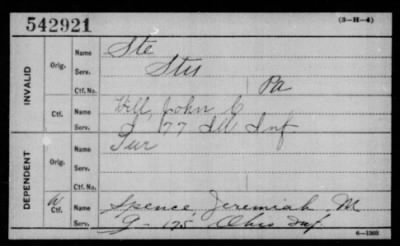 542921
(3-H-4)
INVALID
Orig.
Name Ste
Serv. Stu
Ctf. No. Pa
Ctf.
Name Will, John C
Serv. 77 Ill Inf
DEPENDENT
Orig.
Name Sur
Serv.
Ctf. No.
W
Ctf.
Name Spence, Jeremiah M
Serv. G- 175 Ohio Inf
6-1369